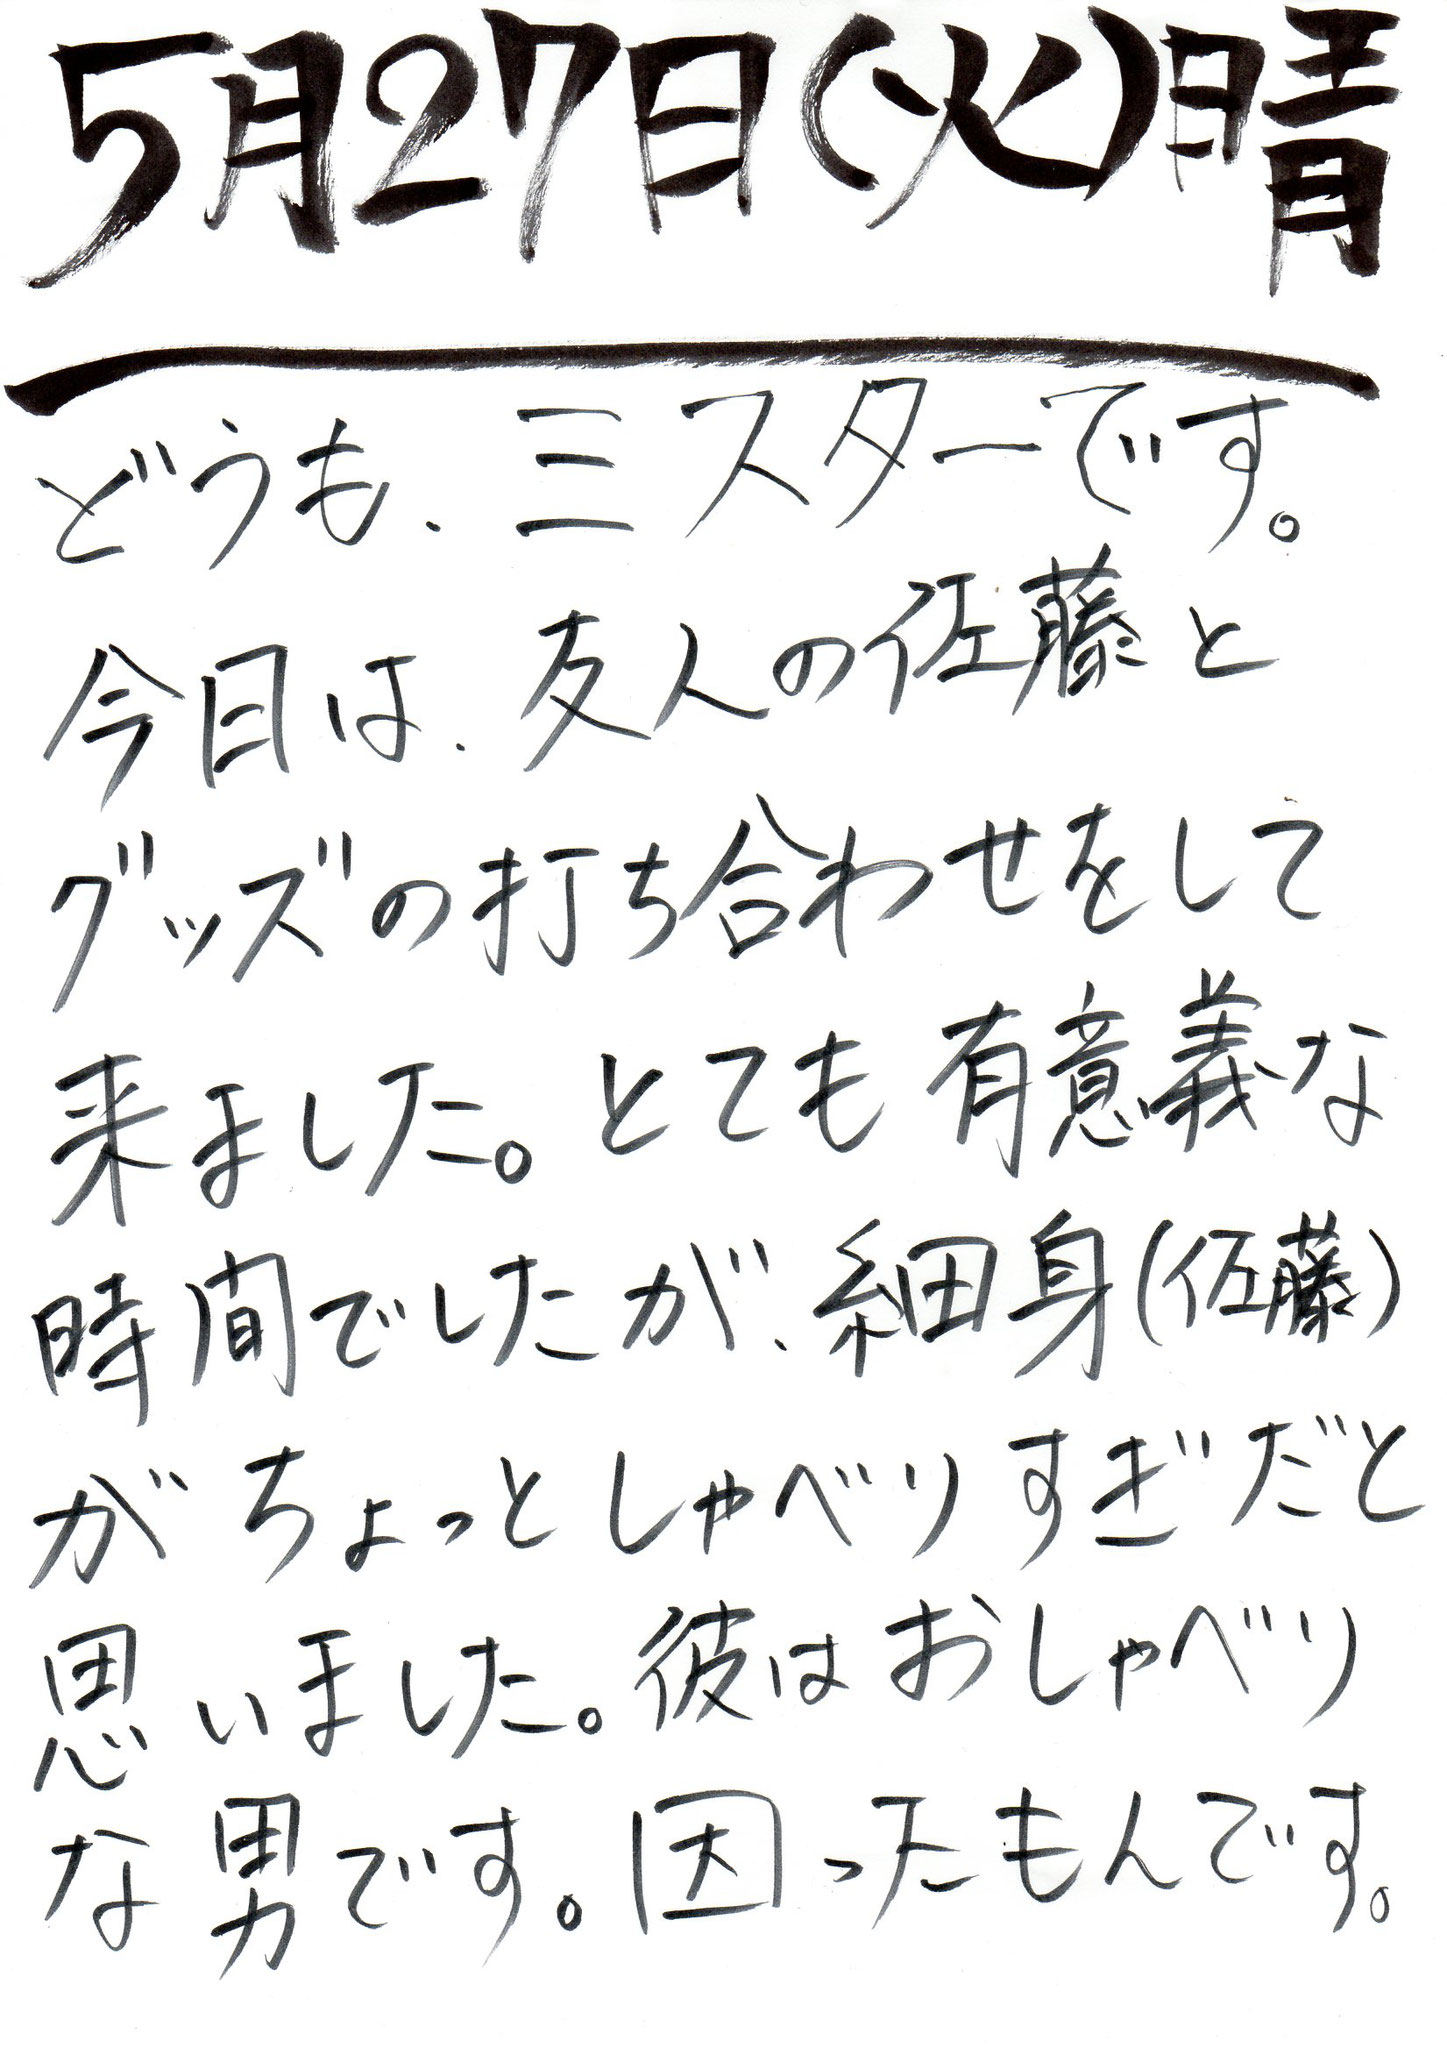 5月27日(火)晴
どうも、三スターです。
今日は、友人の佐藤と
グッズの打ち合わせをして
来ました。とても有意義な
時間でしたが、細身(佐藤)
がちょっとしゃべりすぎだと
思いました。彼はおしゃべり
な男です。困ったもんです。